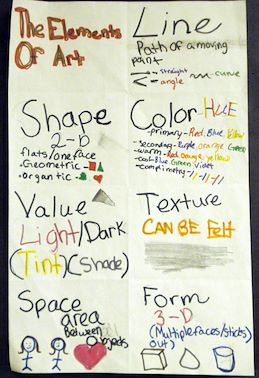 The Elements
Of Art
Line
Path of a moving
point
straight
angle
curve
Shape
2-D
flats/one face
-Geometric-
-organtic-
Color HUE
-primary-Red, Blue, Yellow
-secondary-Purple orange Green
-warm-Red orange yellow
-cool-Blue Green Violet
Value
Light/Dark
(Tint)(Shade)
Texture
CAN BE Felt
Space
area
Between
Objects
Form
3-D
(Multiple faces/Sticks
out)